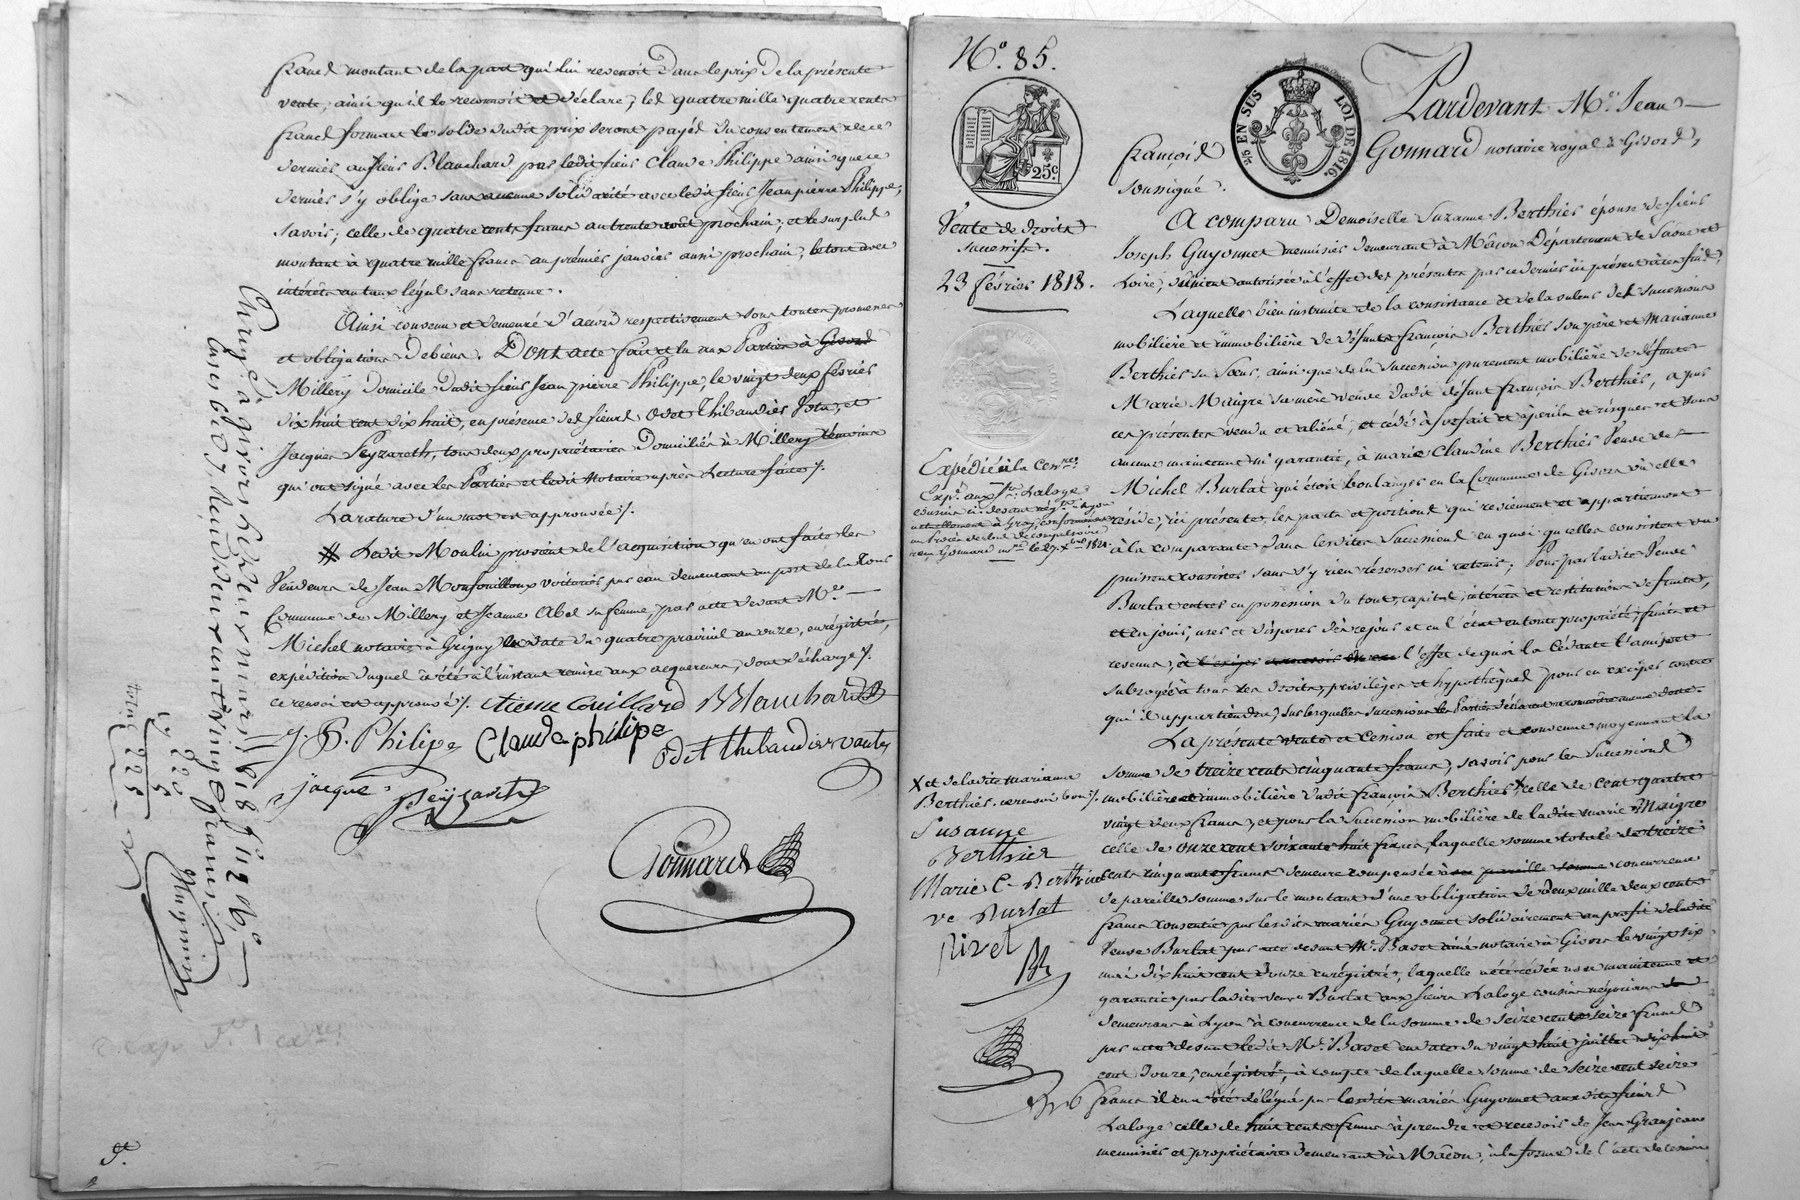 francs montant de la part qui lui revenoit dans le prix de la présente
vente, ainsi qu'il le reconnoit et déclare; les quatre mille quatre cents
francs formant le solde dudit prix seront payés du consentement de ce
dernier au sieur Blanchard par ledit sieur Claude Philippe ainsi que ce
dernier s'y oblige sans aucune solidarité avec ledit sieur Jean pierre Philippe,
savoir; celle de quatre cents francs au trente août prochain; et le surplus
montant à quatre mille francs au premier janvier aussi prochain, le tout avec
intérêts au taux légal sans retenue.
Ainsi convenu et demeuré d'accord respectivement sous toutes promesses
et obligations de biens. Dont acte fait et lu aux Parties à Givors
Millery domicile dudit sieur Jean pierre Philippe, le vingt deux février
dix huit cent dix huit, en présence des sieurs Odet Thibaudier et
Jacques Peyzareth, tous deux propriétaires domiciliés à Millery témoins
qui ont signé avec les Parties et ledit Notaire après lecture faite /.
La rature d'un mot est approuvée /.
# Ledit Moulin provient de l'acquisition qu'en ont faite les
Vendeurs de Jean Monfouilloux voiturier par eau demeurant au port de la Tour
Commune de Millery et Jeanne Abel sa femme, par acte devant Me.
Michel notaire à Grigny en date du quatre prairial an onze, enregistré,
expédition duquel a été à l'instant remise aux acquereurs, dont décharge /.
ce renvoi est approuvé /. Etienne Couillard B Blanchard
J. P. Philipe Claude philipe Odet thibaudier
jacque Peyzareth
Gonnard
Enregistré à givors le
1818 f.
vingt francs
220
225
2. exp.
No. 85.
25c
45 EN SUS
LOI DE 1816.
Pardevant Me. Jean
François
Gonnard notaire royal à Givors,
soussigné.
Vente de droits
successifs.
23 février 1818.
A comparu Demoiselle Suzanne Berthier épouse de sieur
Joseph Guyonnet menuisier demeurant à Mâcon Département de Saone et
Loire, dument autorisée à l'effet des présentes par ce dernier ici présent à ces fins,
Laquelle bien instruite de la consistance et de la valeur des successions
mobilière et immobilière de défunts françois Berthier son père et Marianne
Berthier sa Sœur, ainsi que de la succession purement mobilière de défunte
Marie Maigre sa mère veuve dudit défunt françois Berthier, a par
ces présentes vendu et aliéné, et cédé à forfait et à périls et risques et sans
aucune maintenue ni garantie, à marie Claudine Berthier Veuve de
Michel Burlat qui étoit boulanger en la Commune de Givors où elle
réside, ici présente, les parts et portions qui reviennent et appartiennent
à la comparante dans lesdites Successions en quoi qu'elles consistent ou
puissent consister sans s'y rien réserver ni retenir; Pour par ladite Veuve
Burlat entrer en possession du tout, capital, intérêts et restitution de fruits,
et en jouir, user et disposer dès ce jour et en l'état en toute propriété, fruits et
revenus, à l'effet de quoi la Cédante l'a mise et
subrogée à tous ses droits, privilèges et hypothèques pour en exciper contre
qui il appartiendra, sur lesquelles successions les Parties déclarent ne connoitre aucune dette.
Expédié à la Cess.re
Expn. aux Srs. Laloge
cousins
La présente vente et cession est faite et convenue moyennant la
somme de treize cents cinquante francs, savoir pour les Successions
mobilière et immobilière dudit françois Berthier X celle de cent quatre
vingt deux francs, et pour la succession mobilière de ladite marie Maigre
celle de onze cent soixante huit francs, laquelle somme totale de treize
cents cinquante francs demeure compensée à concurrence
de pareille somme sur le montant d'une obligation de deux mille deux cents
francs consentie par lesdits mariés Guyonnet solidairement au profit de ladite
Veuve Burlat par acte devant Me. Bavet ainé notaire à Givors le vingt six
mai dix huit cent douze enregistré, laquelle a été cédée avec maintenue et
garantie par ladite veuve Burlat aux sieurs Laloge cousins négocians
demeurans à Lyon à concurrence de la somme de seize cents seize francs
par acte devant ledit Me. Bavet en date du vingt huit juillet dix huit
cent douze, enregistré, à compte de laquelle somme de seize cent seize
francs il en a été délégué par lesdits mariés Guyonnet aux dits sieurs
Laloge celle de huit cents francs à prendre et recevoir de Jean Granjean
menuisier et propriétaire demeurant à Mâcon, à la forme de l'acte de cession
X et de ladite marianne
Berthier. ce renvoi bon /.
Susanne
Berthier
Marie C. Berthier
ve Burlat